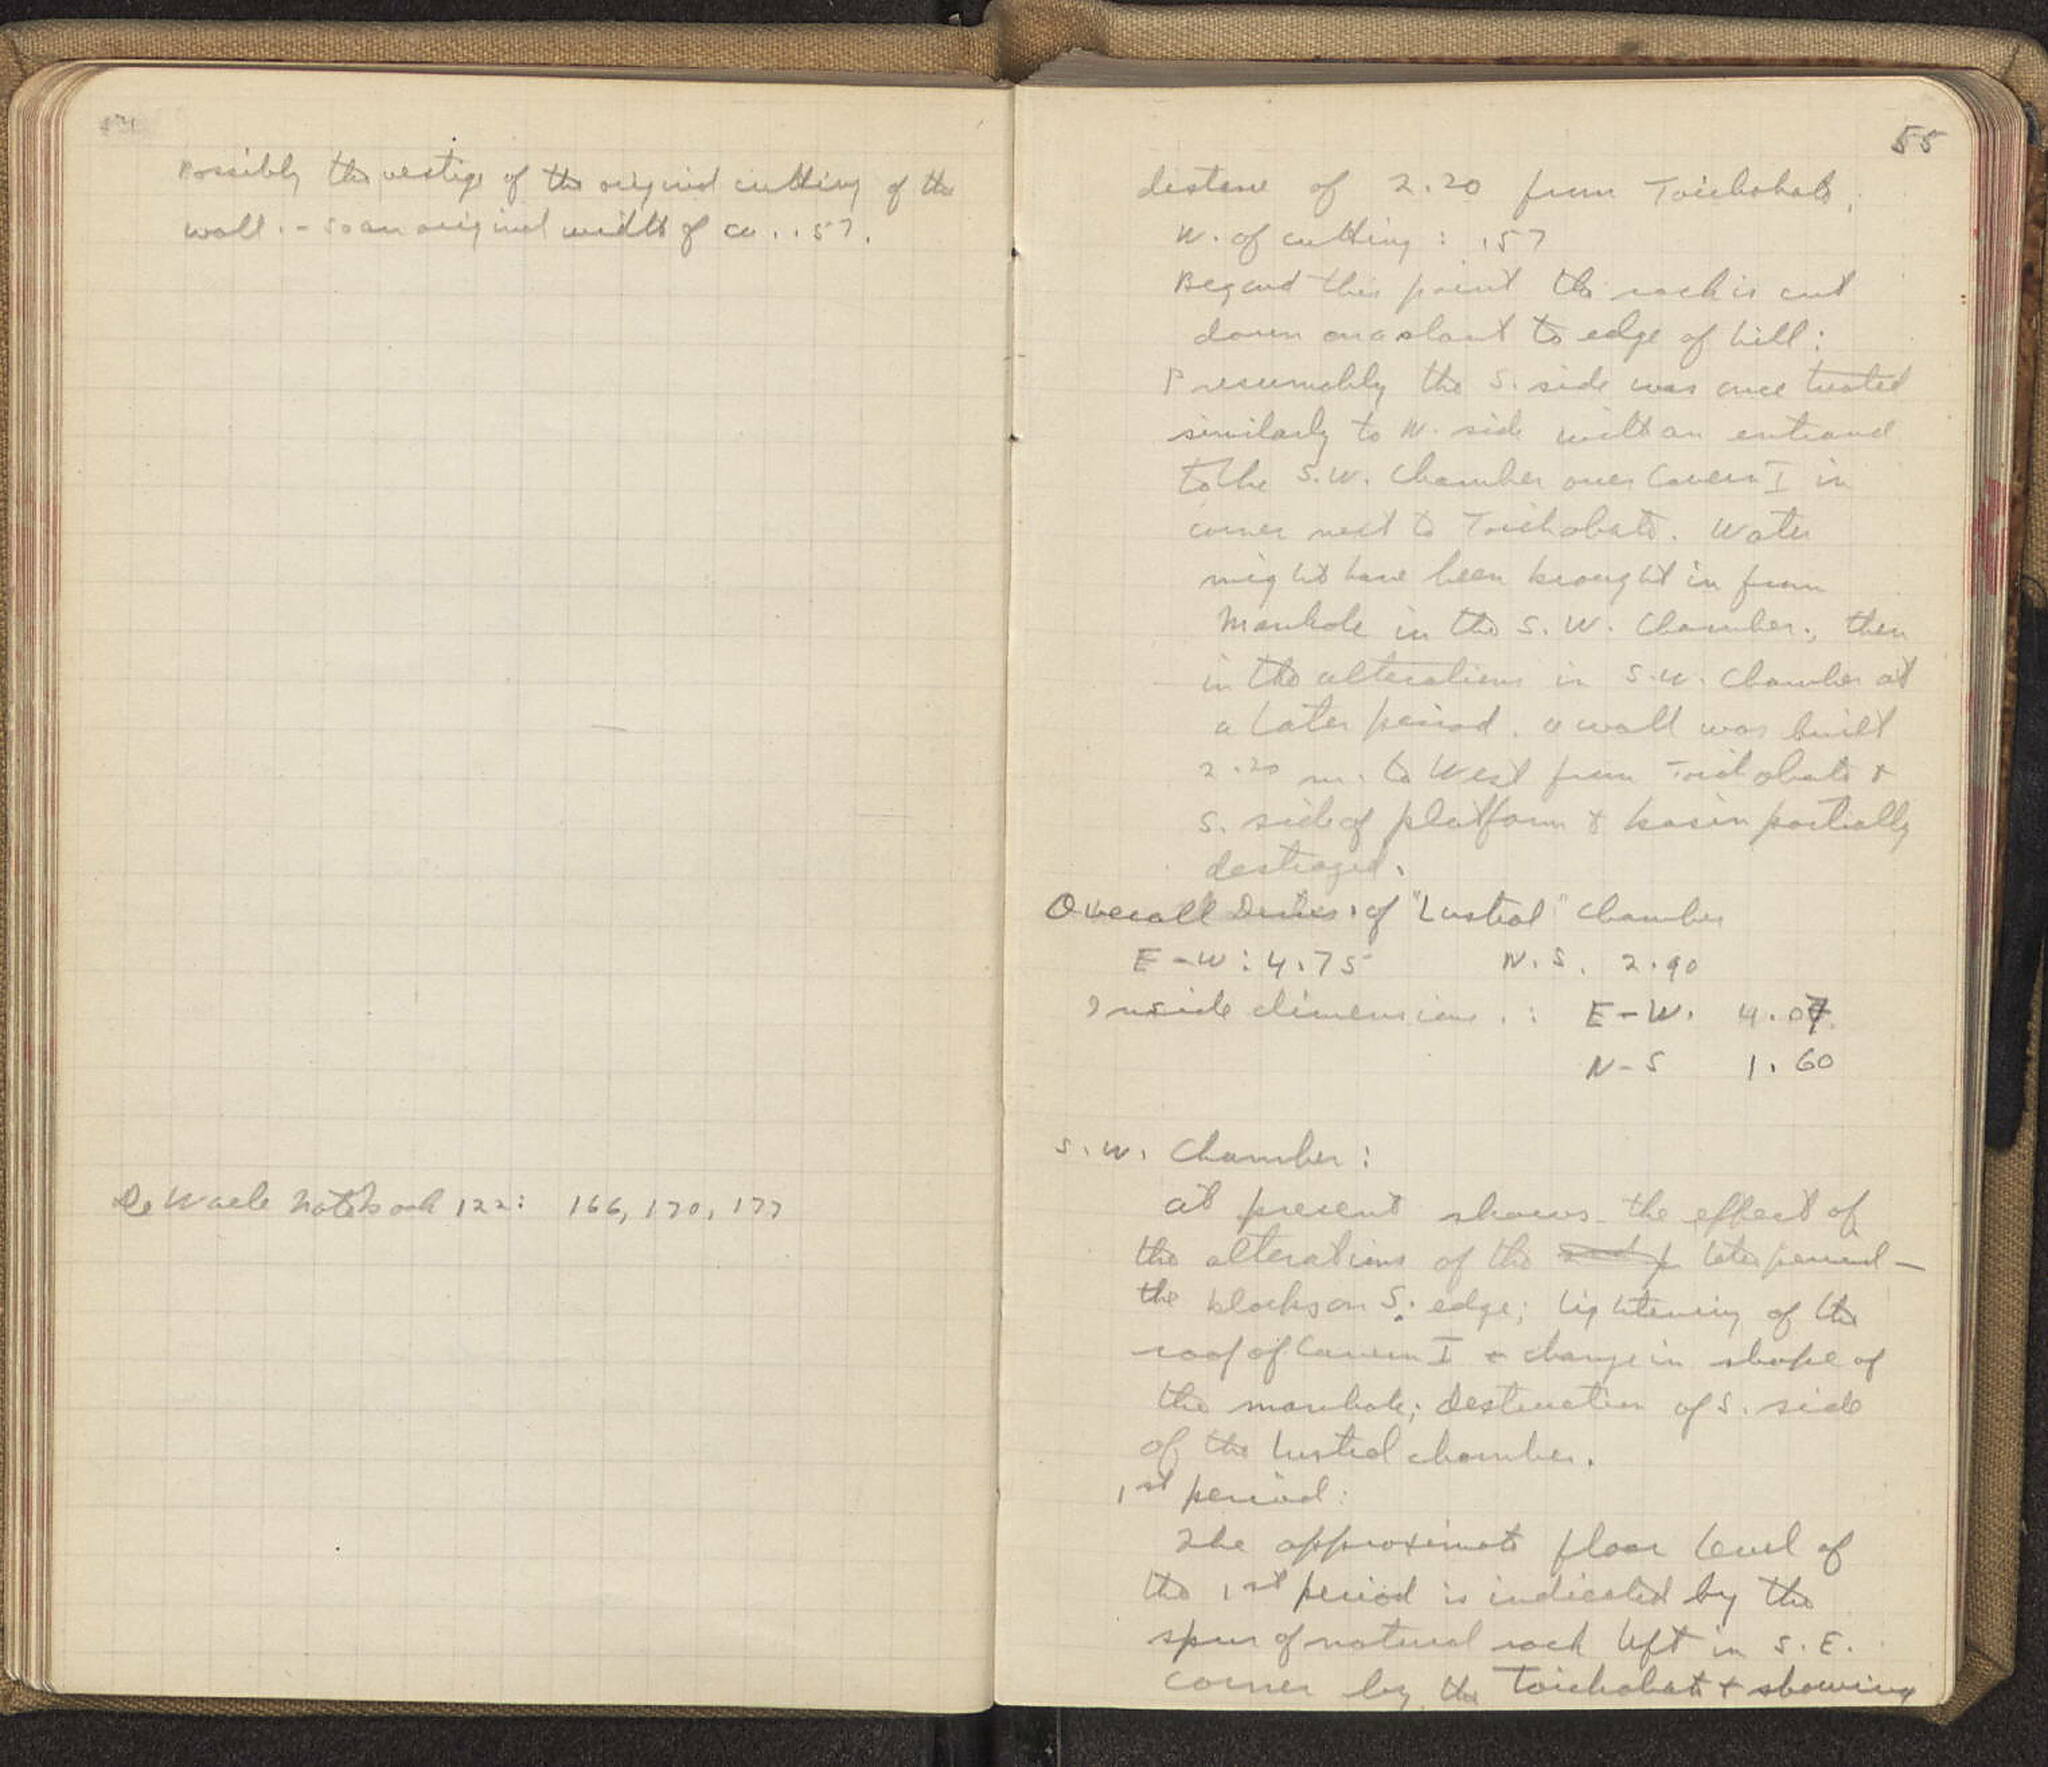 54
Possibly the vestige of the original cutting of the
wall. - So an original width of ca. .57.
De Waele Notebook 122: 166, 170, 177
55
distance of 2.20 from Toichobate.
W. of cutting: .57
Beyond this point the rock is cut
down on a slant to edge of hill:
Presumably the S. side was once treated
similarly to N. side with an entrance
to the S.W. Chamber over Cavern I in
corner next to Toichobate. Water
might have been brought in from
Manhole in the S.W. Chamber., then
in the alterations in S.W. Chamber at
a later period. a wall was built
2.20 m. to West from Toichobate &
S. side of platform & basin partially
destroyed.
Overall Dims. of "Lustral" Chamber
E-W: 4.75 N.S. 2.90
Inside dimensions.: E-W. 4.07
N-S 1.60
S.W. Chamber:
at present shows the effect of
the alterations of the late period -
the blocks on S. edge; lightening of the
roof of Cavern I & change in shape of
the manhole; destruction of S. side
of the Lustral chamber.
1st period:
The approximate floor level of
the 1st period is indicated by the
spur of natural rock left in S.E.
corner by the Toichobate & showing